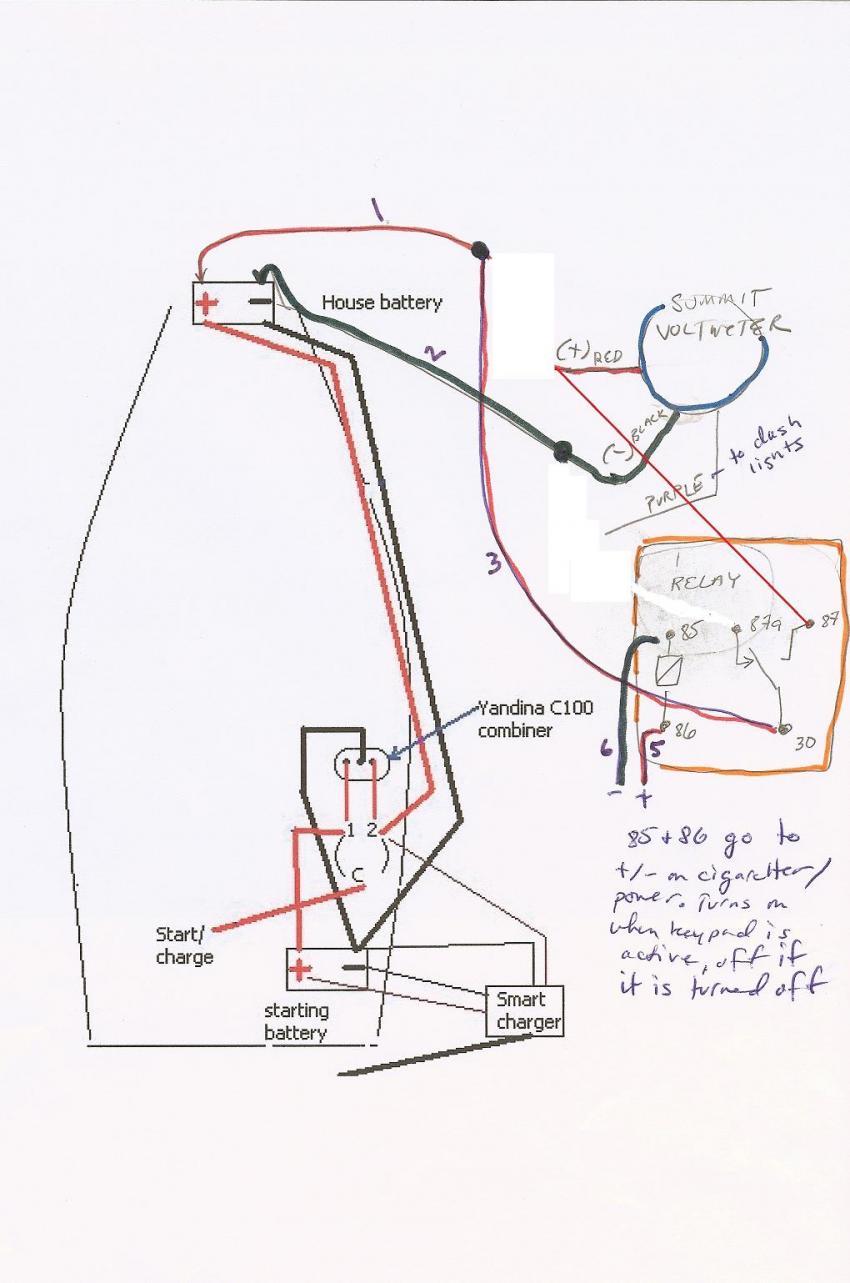 1
+
−
House battery
2
SUMMIT
VOLTMETER
(+) RED
(-) BLACK
PURPLE - to dash
lights
3
RELAY
85
87a
87
86
30
6
5
-
+
Yandina C100
combiner
1 2
C
85 + 86 go to
+/- on cigaretter/
power. Turns on
when keypad is
active, off if
it is turned off
Start/
charge
+
−
starting
battery
Smart
charger